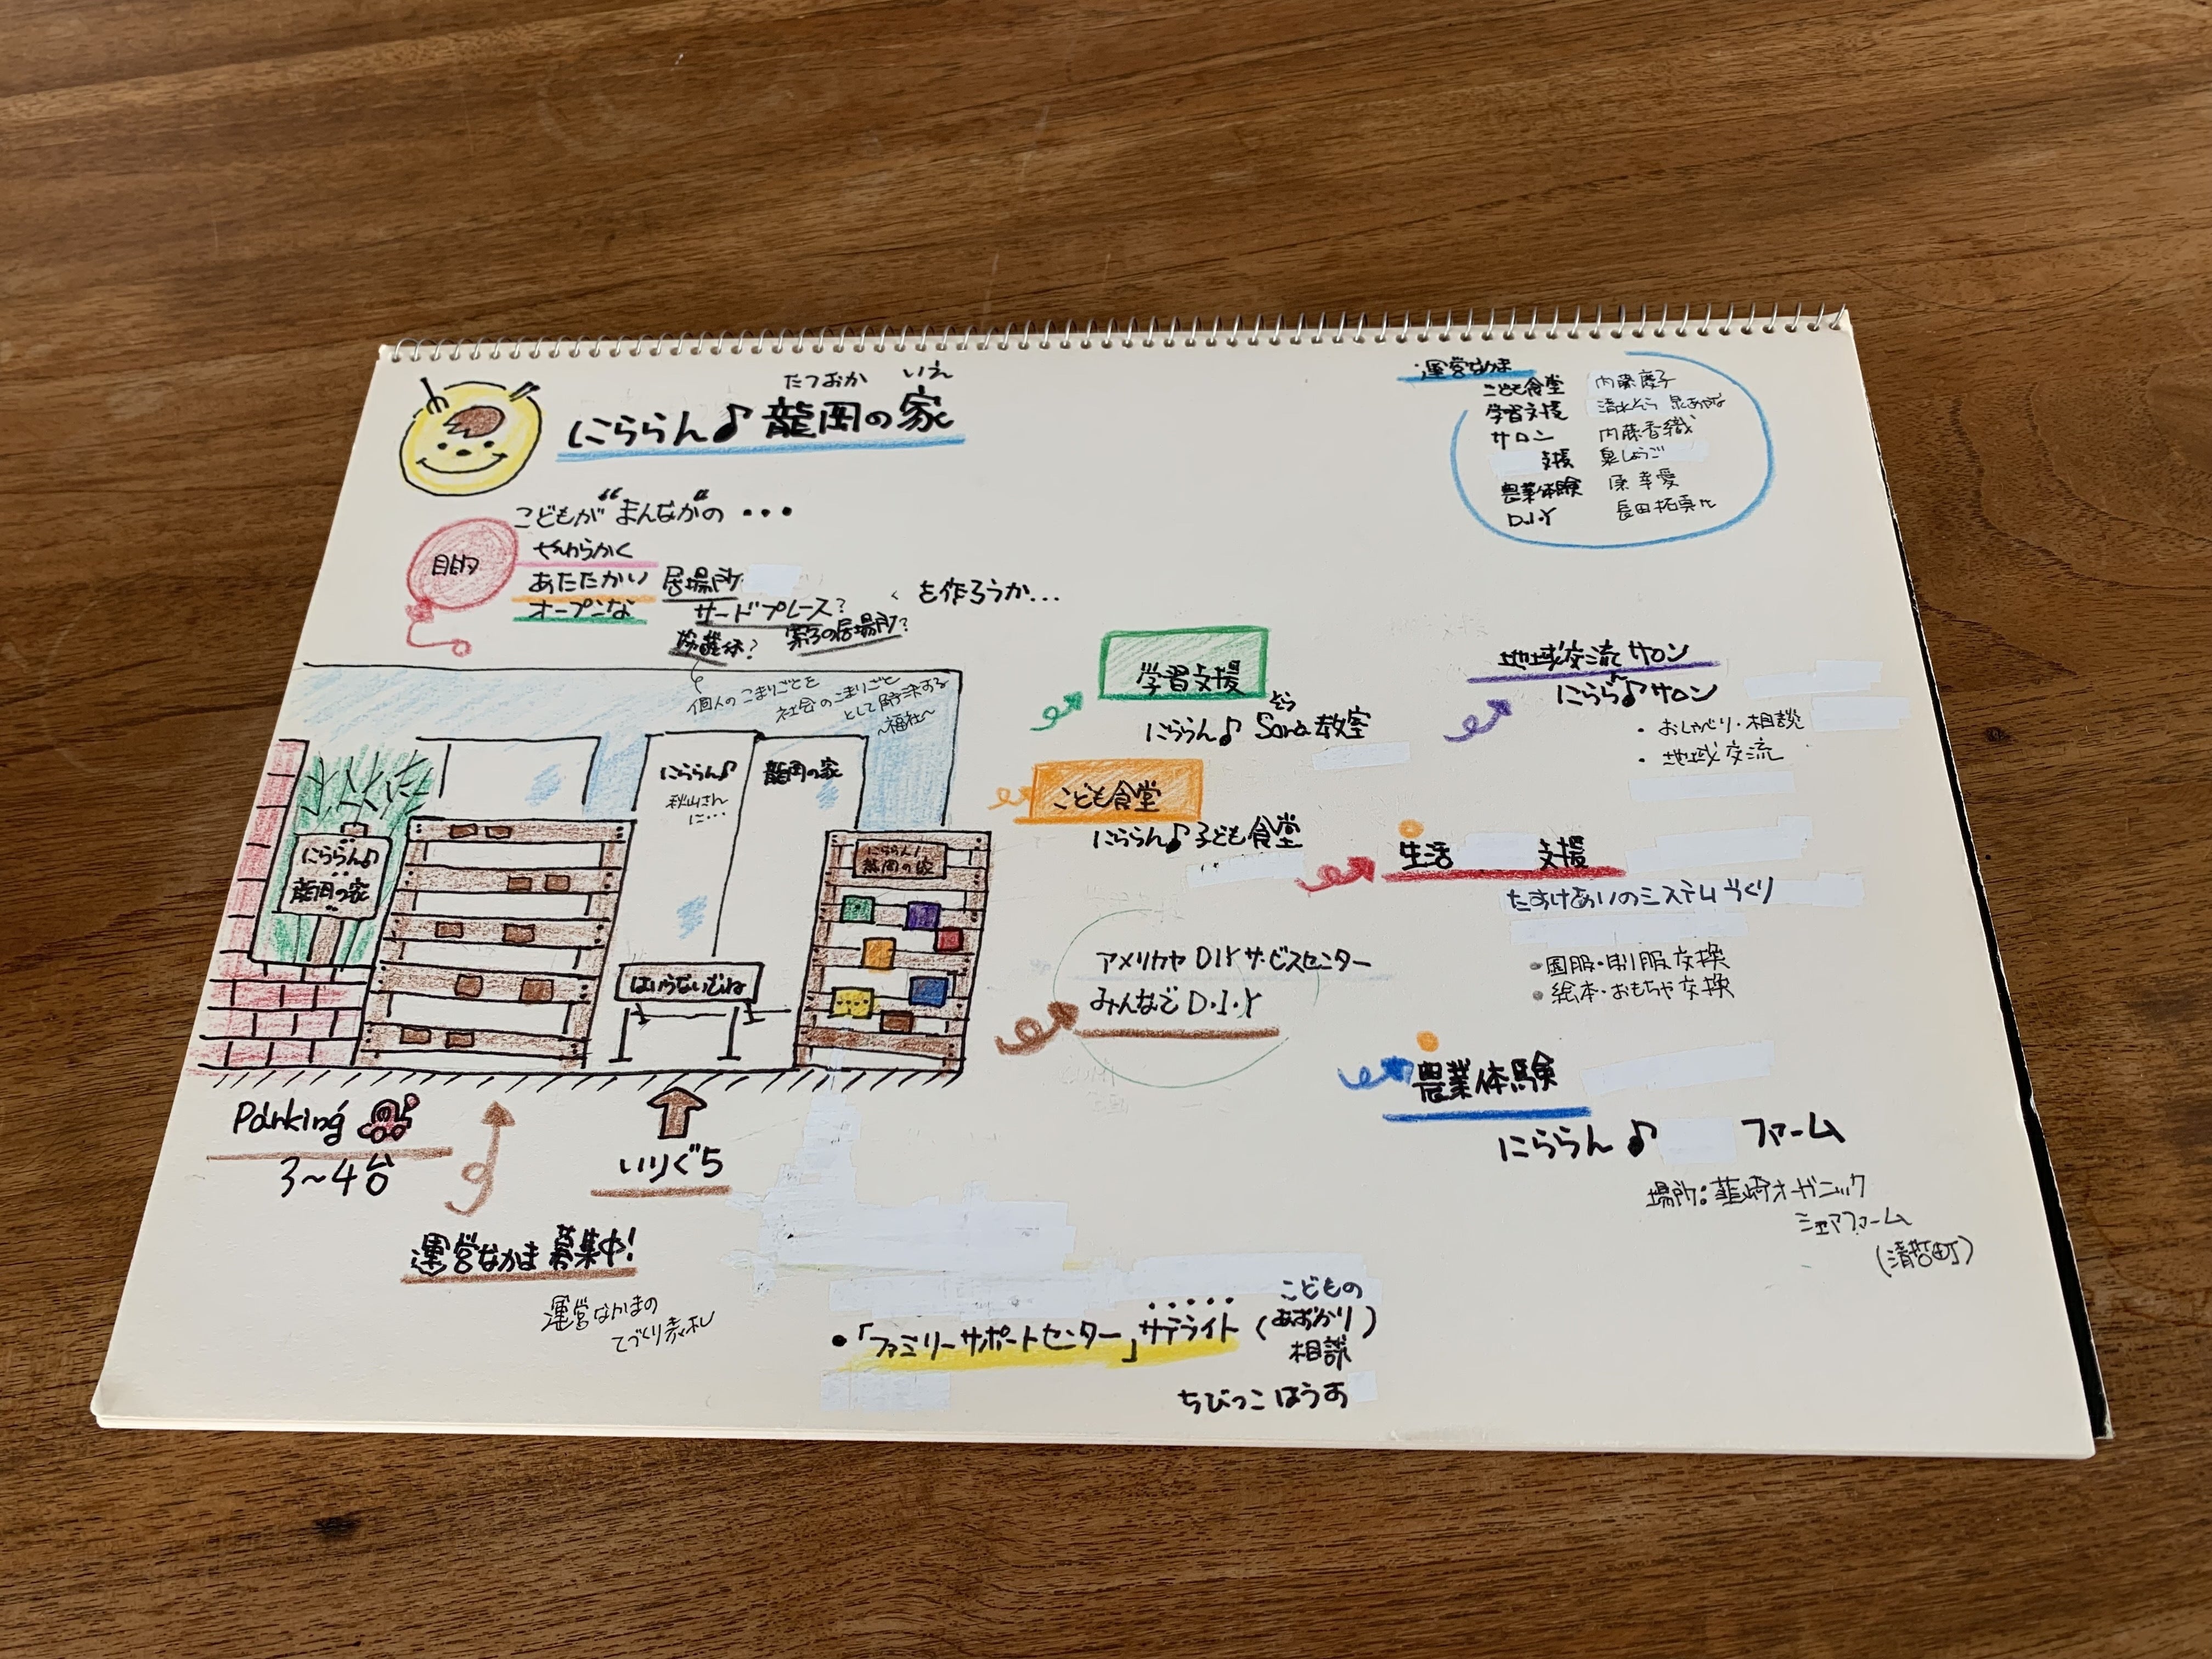 たつおか いえ
にららん♪龍岡の家
こどもが"まんなか"の・・・
目的
やわらかく
あたたかい 居場所
オープンな サードプレース?
第3の居場所?
を作ろうか...
個人のこまりごとを
社会のこまりごと
として解決する
~福祉~
運営なかま
こども食堂 内藤慶子
学習支援 清水そら 泉あやな
サロン 内藤香織
支援 泉しょうご
農業体験 原 幸愛
D.I.Y 長田拓真
にららん♪
龍岡の家
にららん♪
秋山さん
に・・・
龍岡の家
にららん♪
龍岡の家
はいらないでね
Parking
3~4台
いりぐち
運営なかま募集中!
運営なかまの
てづくり表札
学習支援
そら
にららん♪ Sora教室
こども食堂
にららん♪子ども食堂
アメリカヤ DIYサービスセンター
みんなで D.I.Y
地域交流サロン
にららん♪サロン
・おしゃべり・相談
・地域交流
生活 支援
たすけあいのシステムづくり
・園服・制服交換
・絵本・おもちゃ交換
農業体験
にららん♪ ファーム
場所:韮崎オーガニック
シェアファーム
(清哲町)
・「ファミリーサポートセンター」サテライト
(こどもの
あずかり)
相談
ちびっこはうす